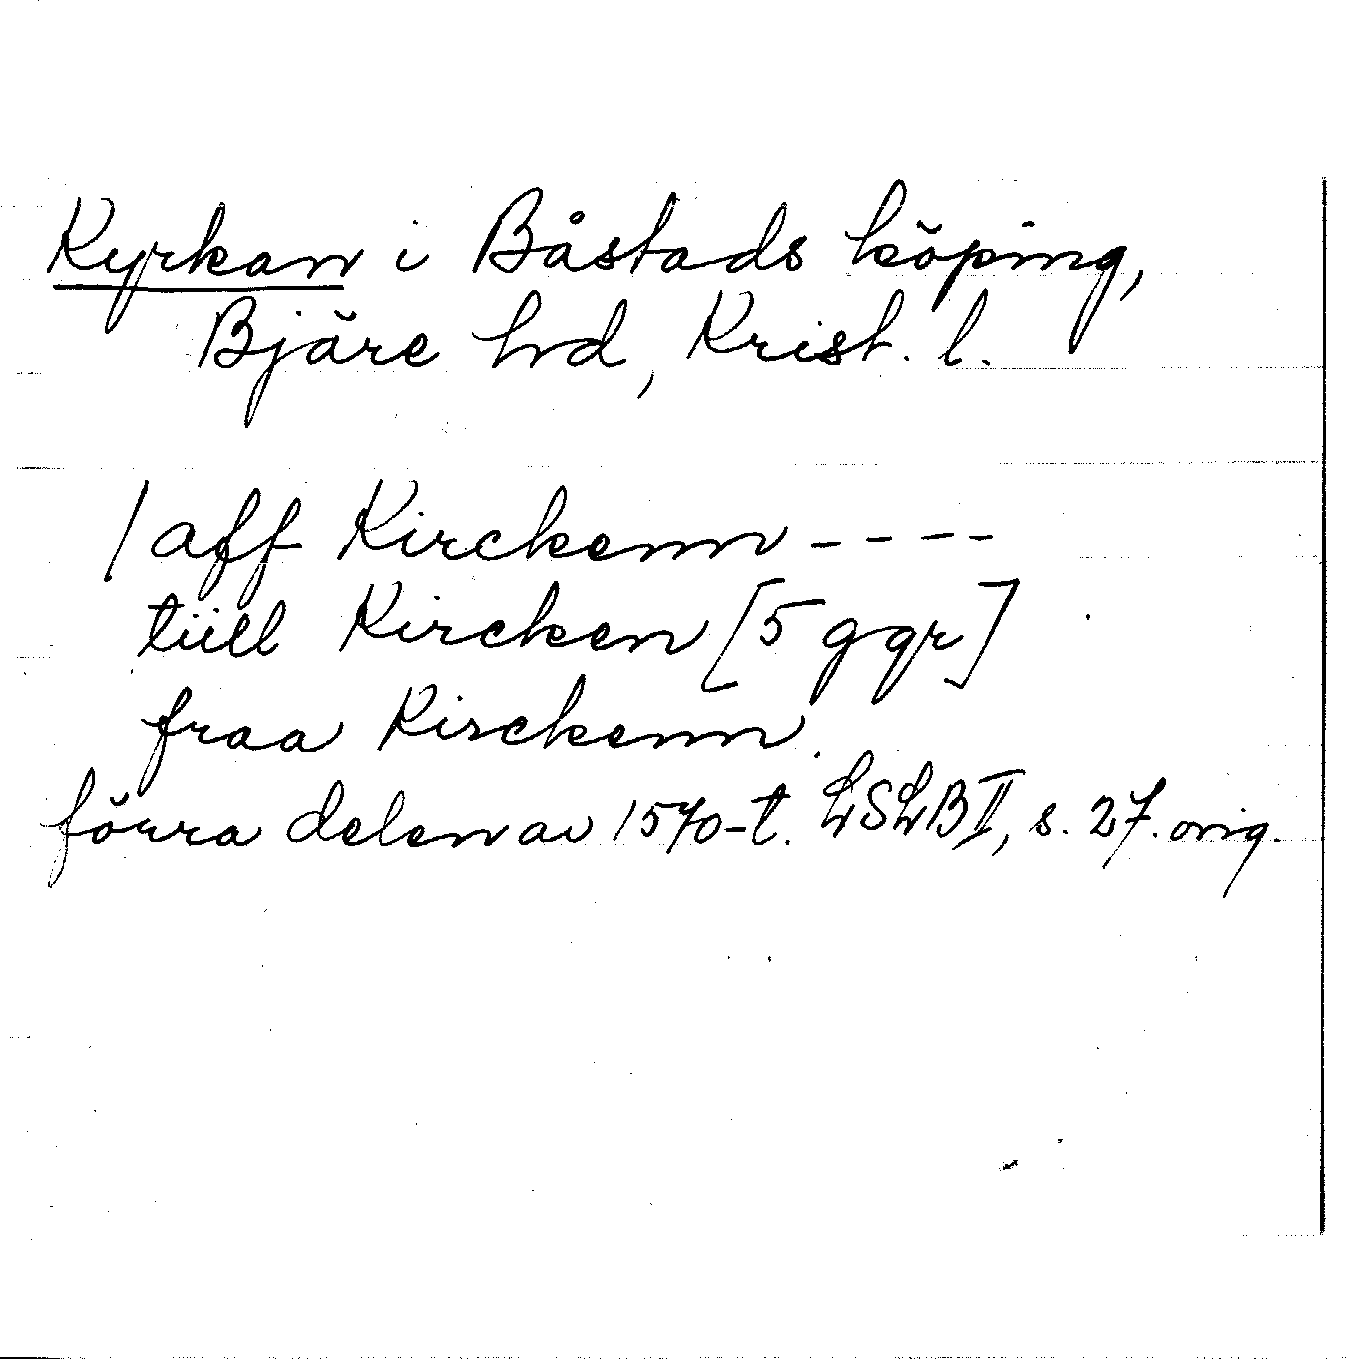 Kyrkan i Båstads köping,
Bjäre hd, Krist. l.
/ aff Kirckenn - - - -
tüll Kircken [5 ggr]
fraa Kirckenn.
förra delen av 1570-t. LSLB II, s. 27. orig.